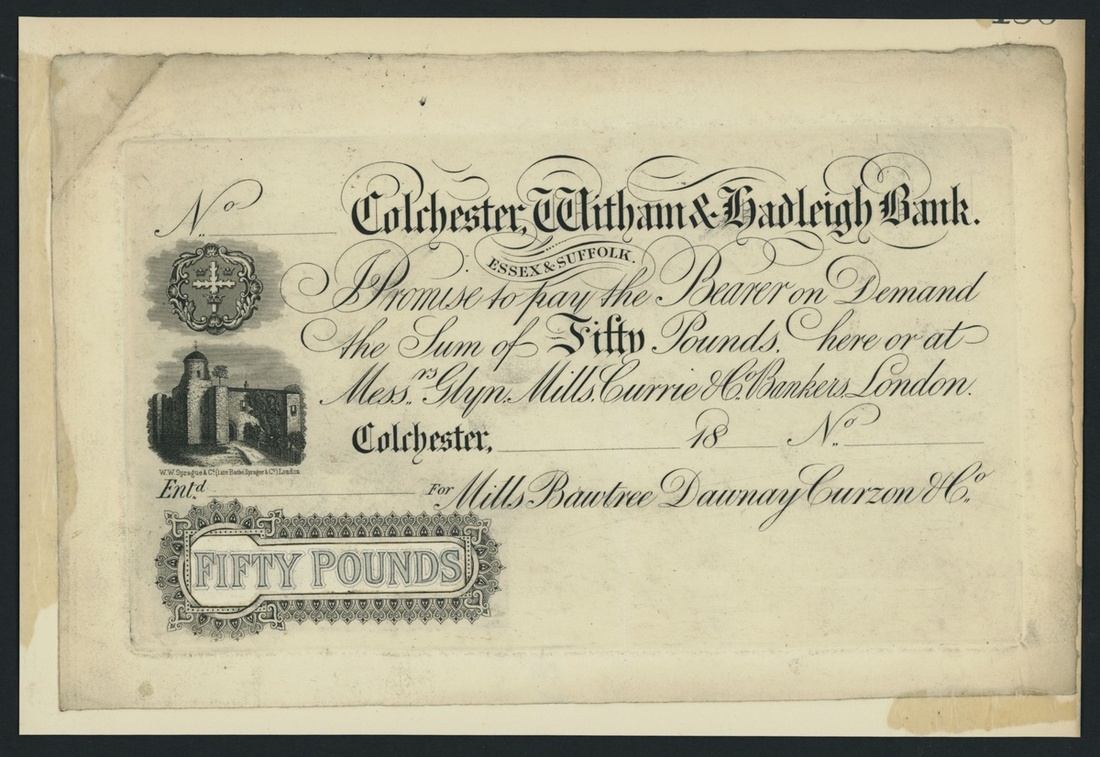 No
Colchester, Witham & Hadleigh Bank.
ESSEX & SUFFOLK.
I Promise to pay the Bearer on Demand
the Sum of Fifty Pounds, here or at
Messrs Glyn, Mills, Currie & Co. Bankers, London.
Colchester, 18 No
W.W. Sprague & Co. (late Baths Sprague & Co.) London
Entd For Mills Bawtree Dawnay Curzon & Co.
FIFTY POUNDS